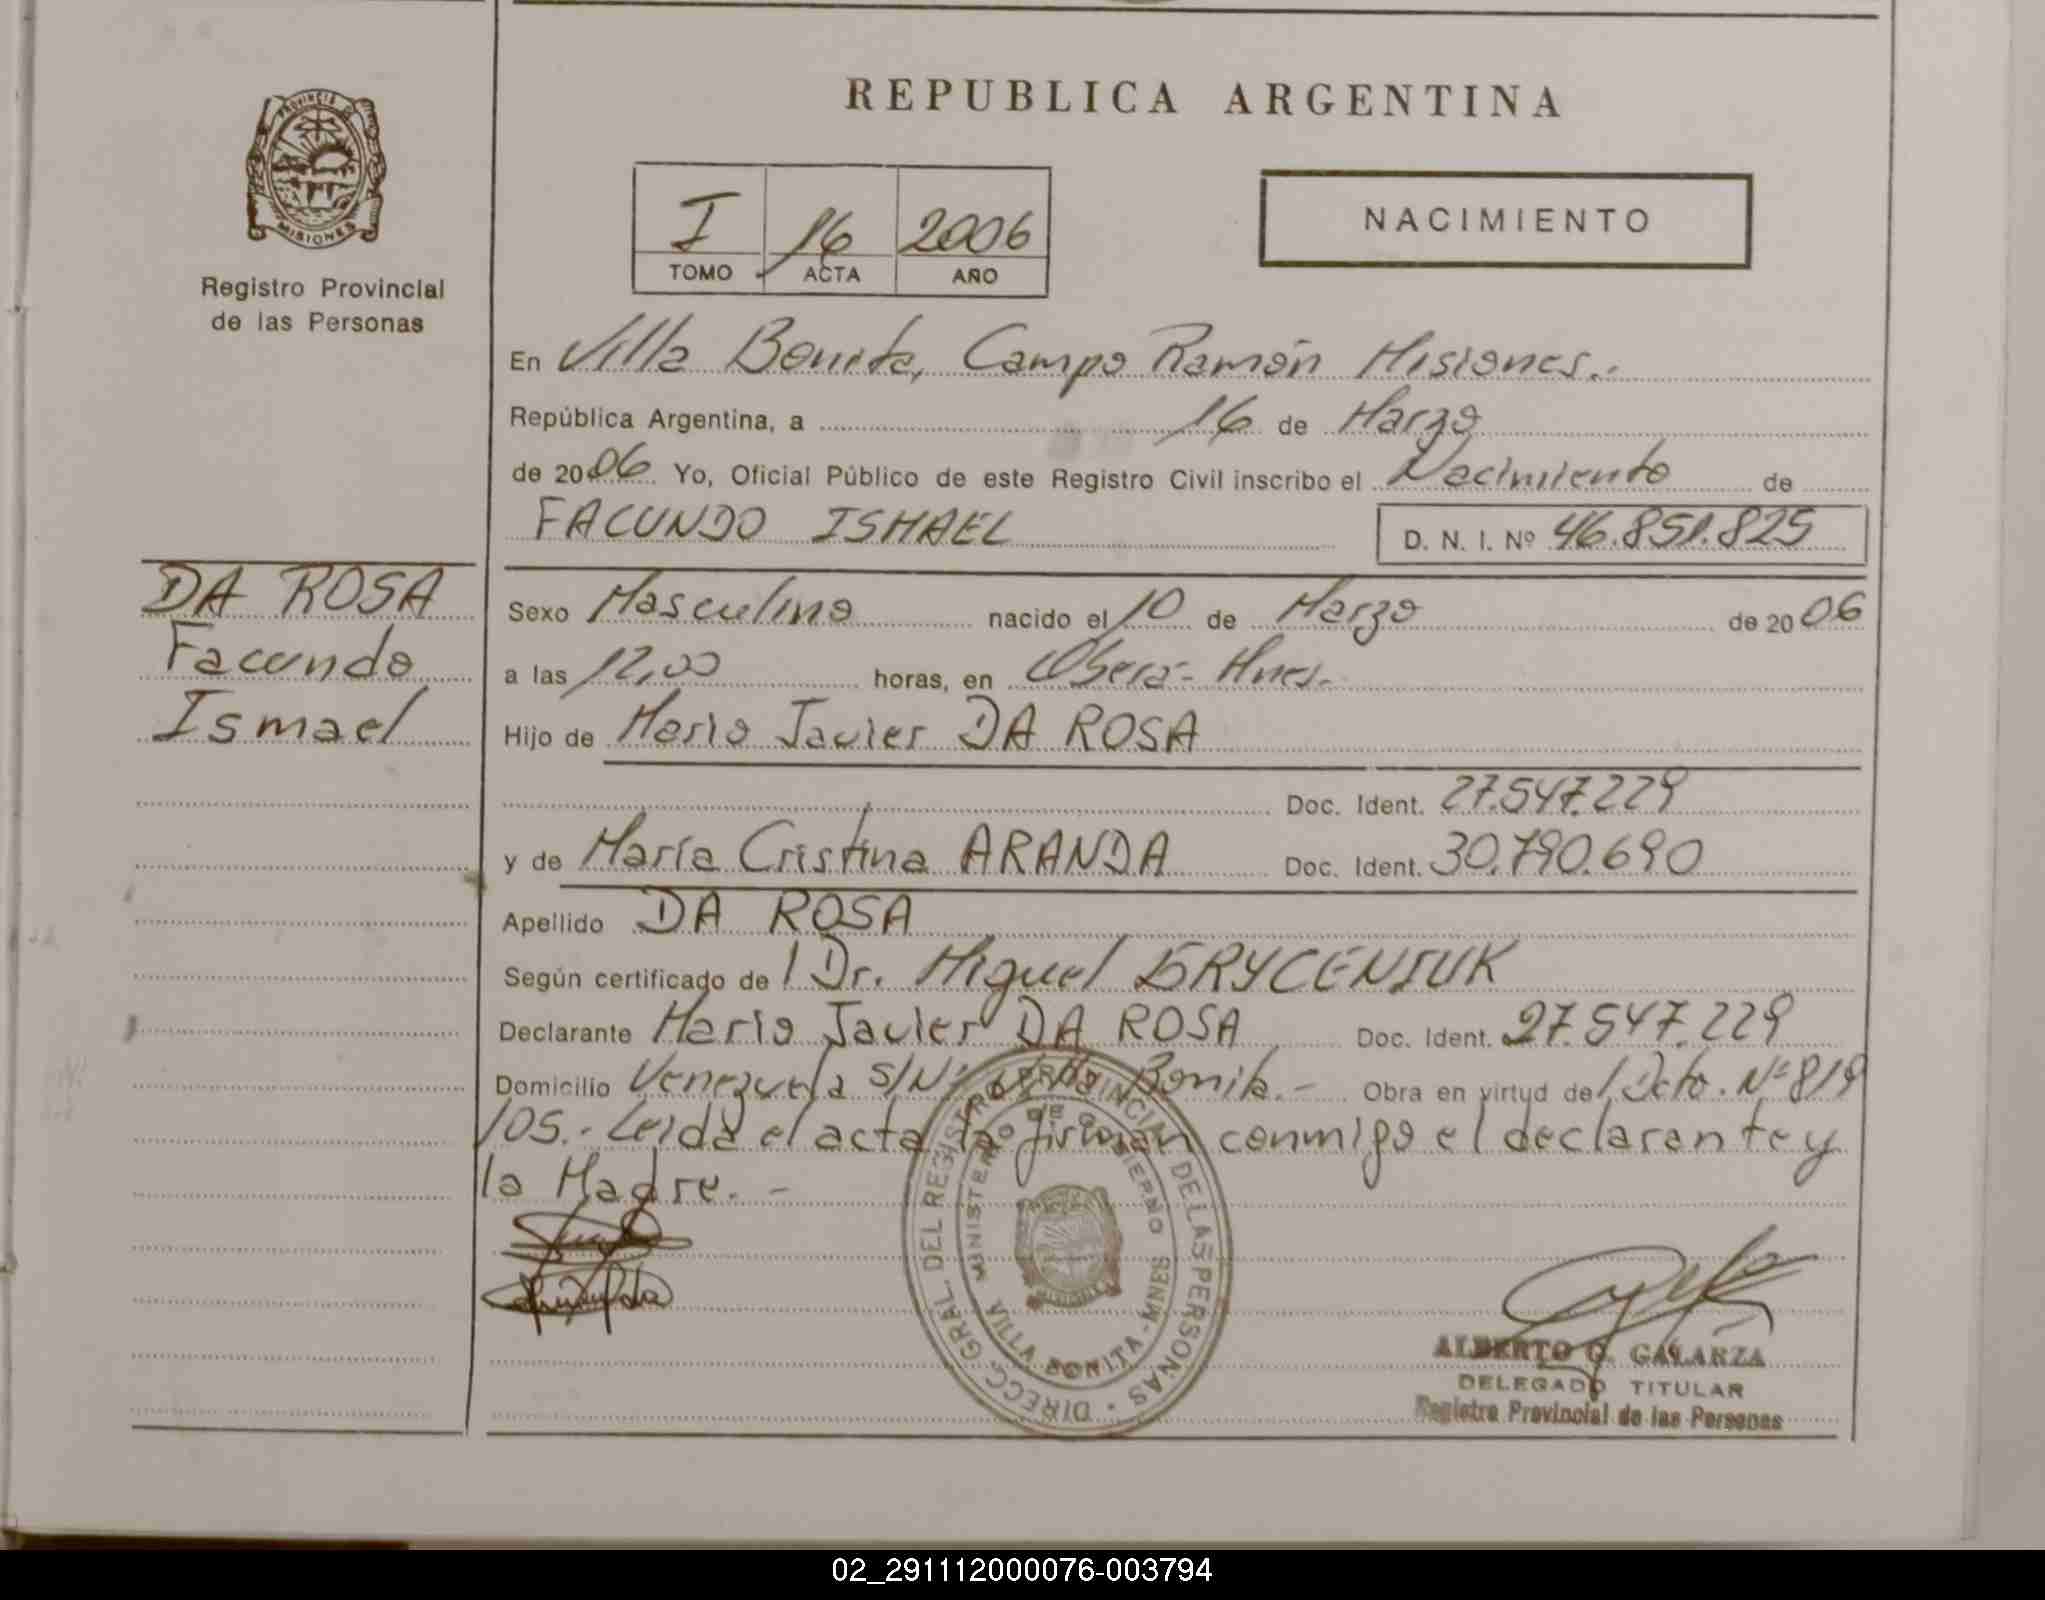 REPUBLICA ARGENTINA
PROVINCIA DE
MISIONES
Registro Provincial
de las Personas
I 16 2006
TOMO ACTA AÑO
NACIMIENTO
En Villa Bonita, Campo Ramón Misiones.-
República Argentina, a 16 de Marzo
de 2006 Yo, Oficial Público de este Registro Civil inscribo el Nacimiento de
FACUNDO ISMAEL D. N. I. Nº 46.851.825
DA ROSA
Facundo
Ismael
Sexo Masculino nacido el 10 de Marzo de 2006
a las 12,00 horas, en Oberá- Mnes.-
Hijo de Mario Javier DA ROSA
Doc. Ident. 27.547.229
y de María Cristina ARANDA Doc. Ident. 30.790.690
Apellido DA ROSA
Según certificado de l Dr. Miguel
Declarante Mario Javier DA ROSA Doc. Ident. 27.547.229
Domicilio Venezuela S/Nº Villa Bonita.- Obra en virtud del Dcto. Nº 819
/05.- Leída el acta la firman conmigo el declarante y
la Madre.-
DIRECC. GRAL DEL REGISTRO PROVINCIAL DE LAS PERSONAS
MINISTERIO DE GOBIERNO
VILLA BONITA - MNES
MISIONES
ALBERTO O. GALARZA
DELEGADO TITULAR
Registro Provincial de las Personas
02_291112000076-003794